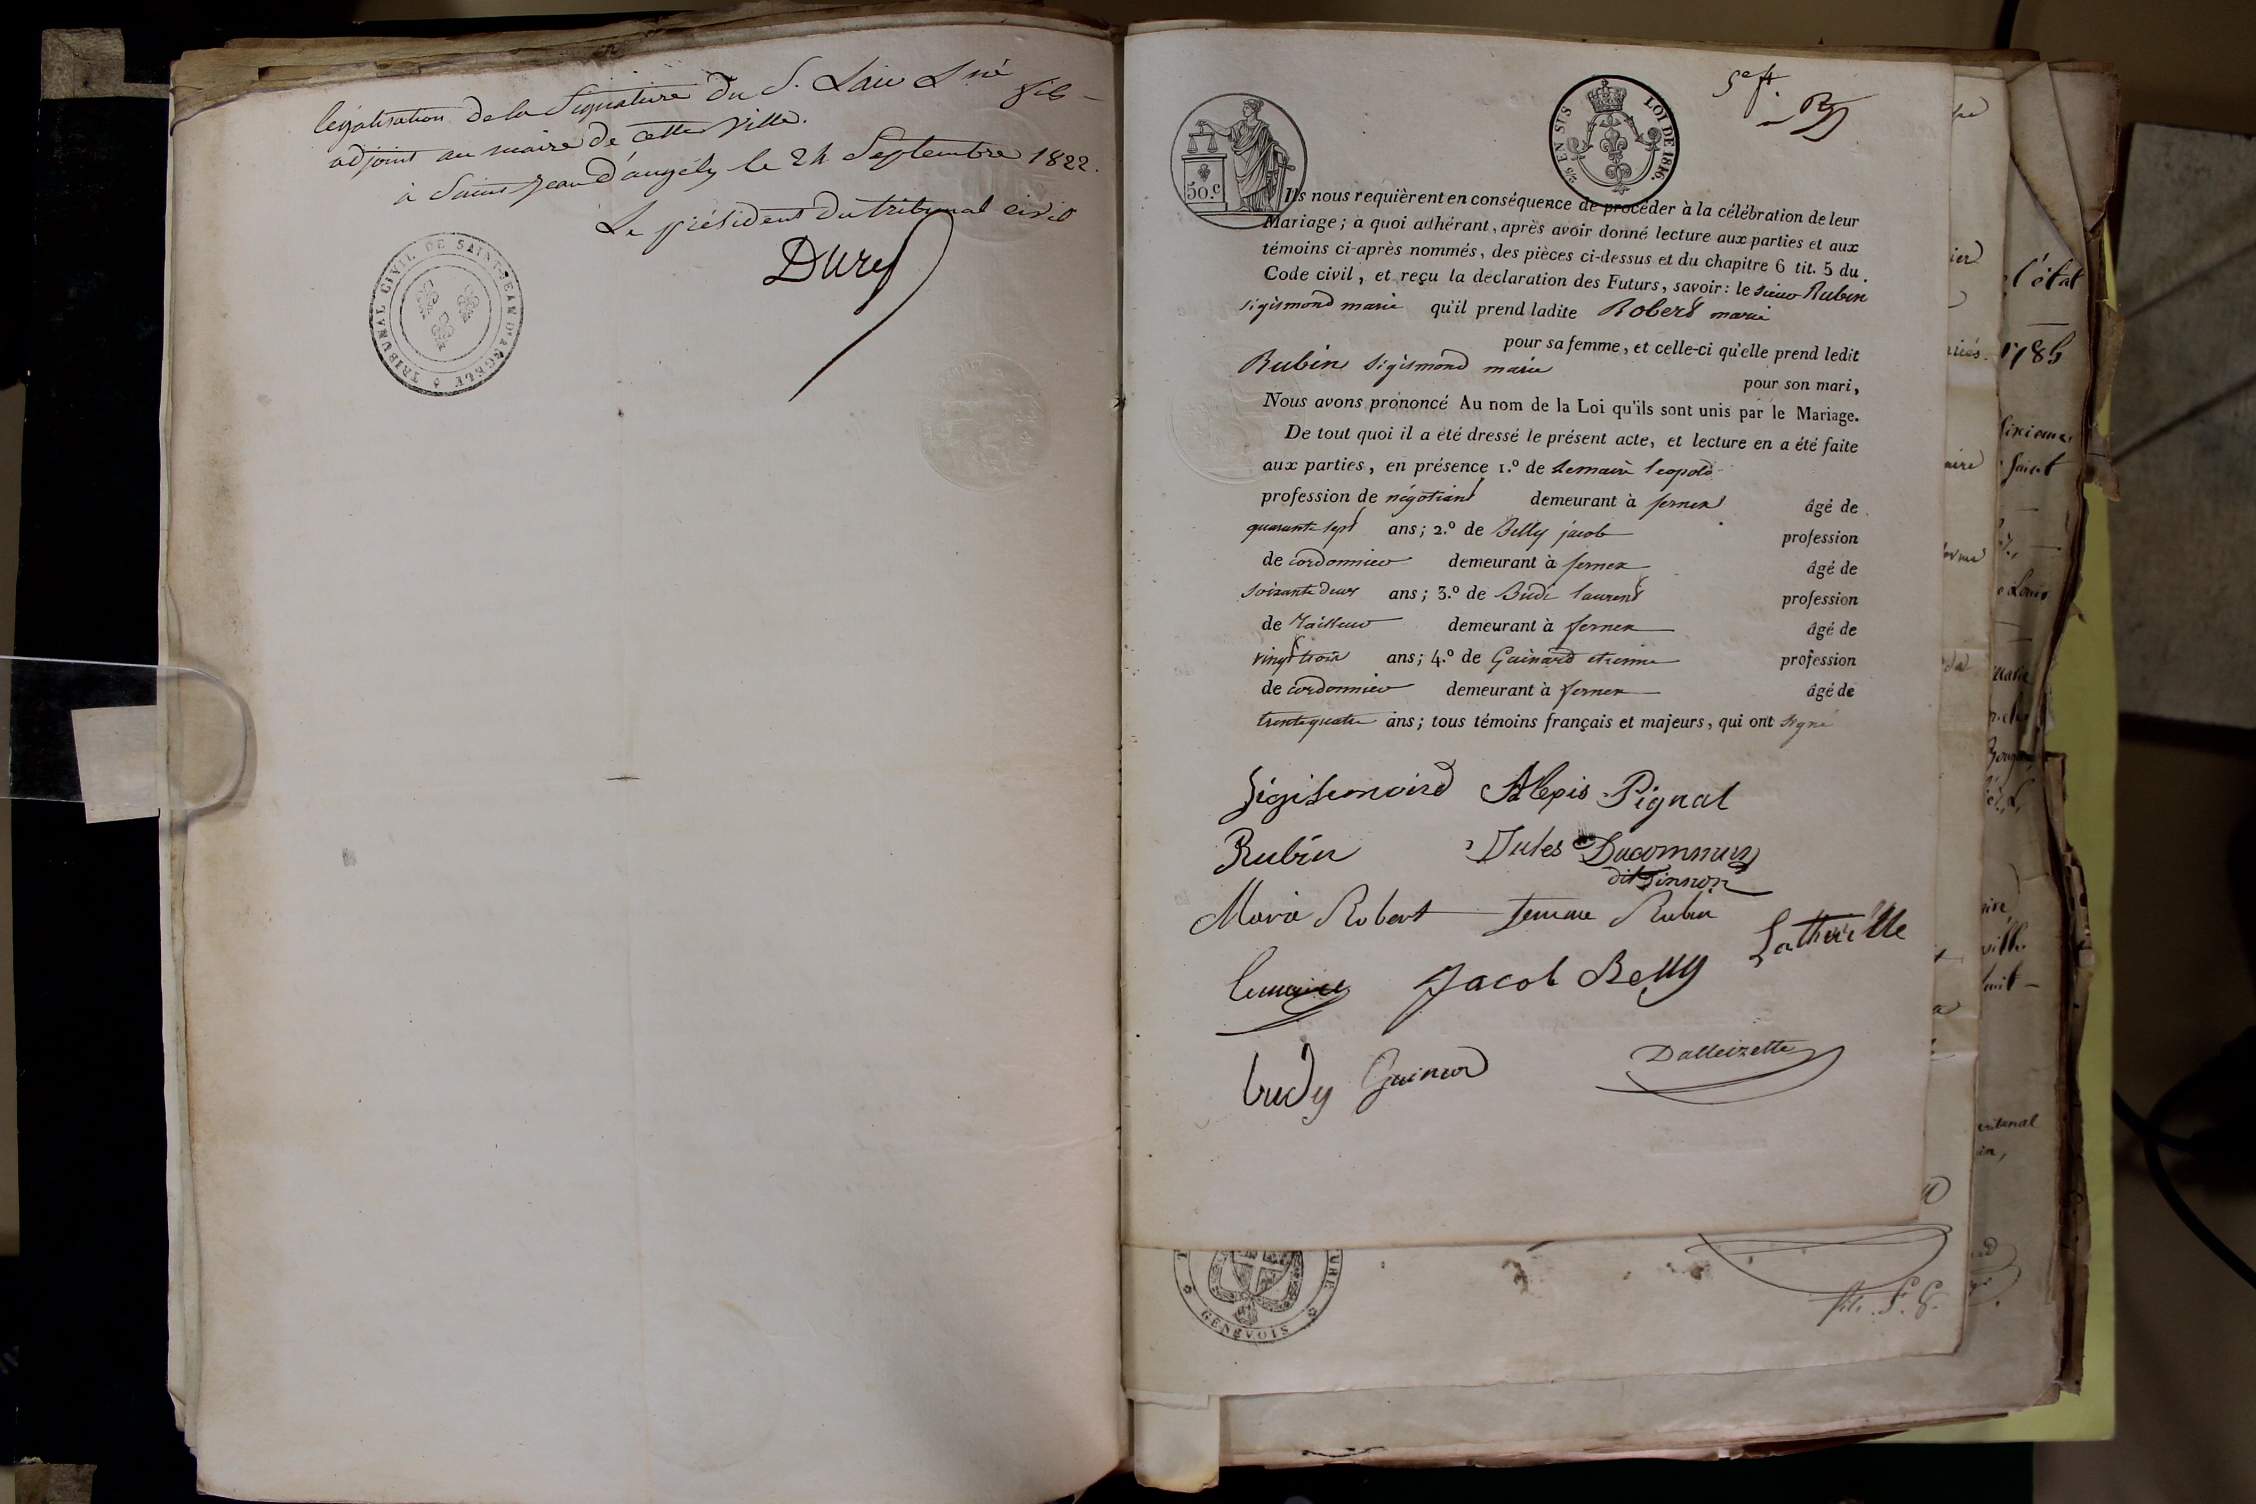 légalisation de la Signature du S. Lair fils
adjoint au maire de cette ville.
à Saint Jean d'angély le 24 Septembre 1822.
Le président du tribunal civil
Durey
TRIBUNAL CIVIL DE SAINT-JEAN D'ANGELY
5e ft.
50.c
EN SUS
LOI DE 1816.
Ils nous requièrent en conséquence de procéder à la célébration de leur
Mariage; a quoi adhérant, après avoir donné lecture aux parties et aux
témoins ci-après nommés, des pièces ci-dessus et du chapitre 6 tit. 5 du
Code civil, et reçu la déclaration des Futurs, savoir: le sieur Rubin
sigismond marie qu'il prend ladite Robert marie
pour sa femme, et celle-ci qu'elle prend ledit
Rubin sigismond marie
pour son mari,
Nous avons prononcé Au nom de la Loi qu'ils sont unis par le Mariage.
De tout quoi il a été dressé le présent acte, et lecture en a été faite
aux parties, en présence 1.º de Lemaire leopold
profession de négotiant demeurant à fernex âgé de
quarante sept ans; 2.º de Belly jacob profession
de cordonnier demeurant à fernex âgé de
soixante deux ans; 3.º de Budi laurent profession
de Tailleur demeurant à fernex âgé de
vingt trois ans; 4.º de Guinard etienne profession
de cordonnier demeurant à fernex âgé de
trente quatre ans; tous témoins français et majeurs, qui ont signé
Sigismond Alexis Pignal
Rubin Jules Ducommun
dit Tinnon
Marie Robert femme Rubin
Lemaire Jacob Belly
budy Guinard
GENEVOIS
l'état
1785
Saint
Louis
ville